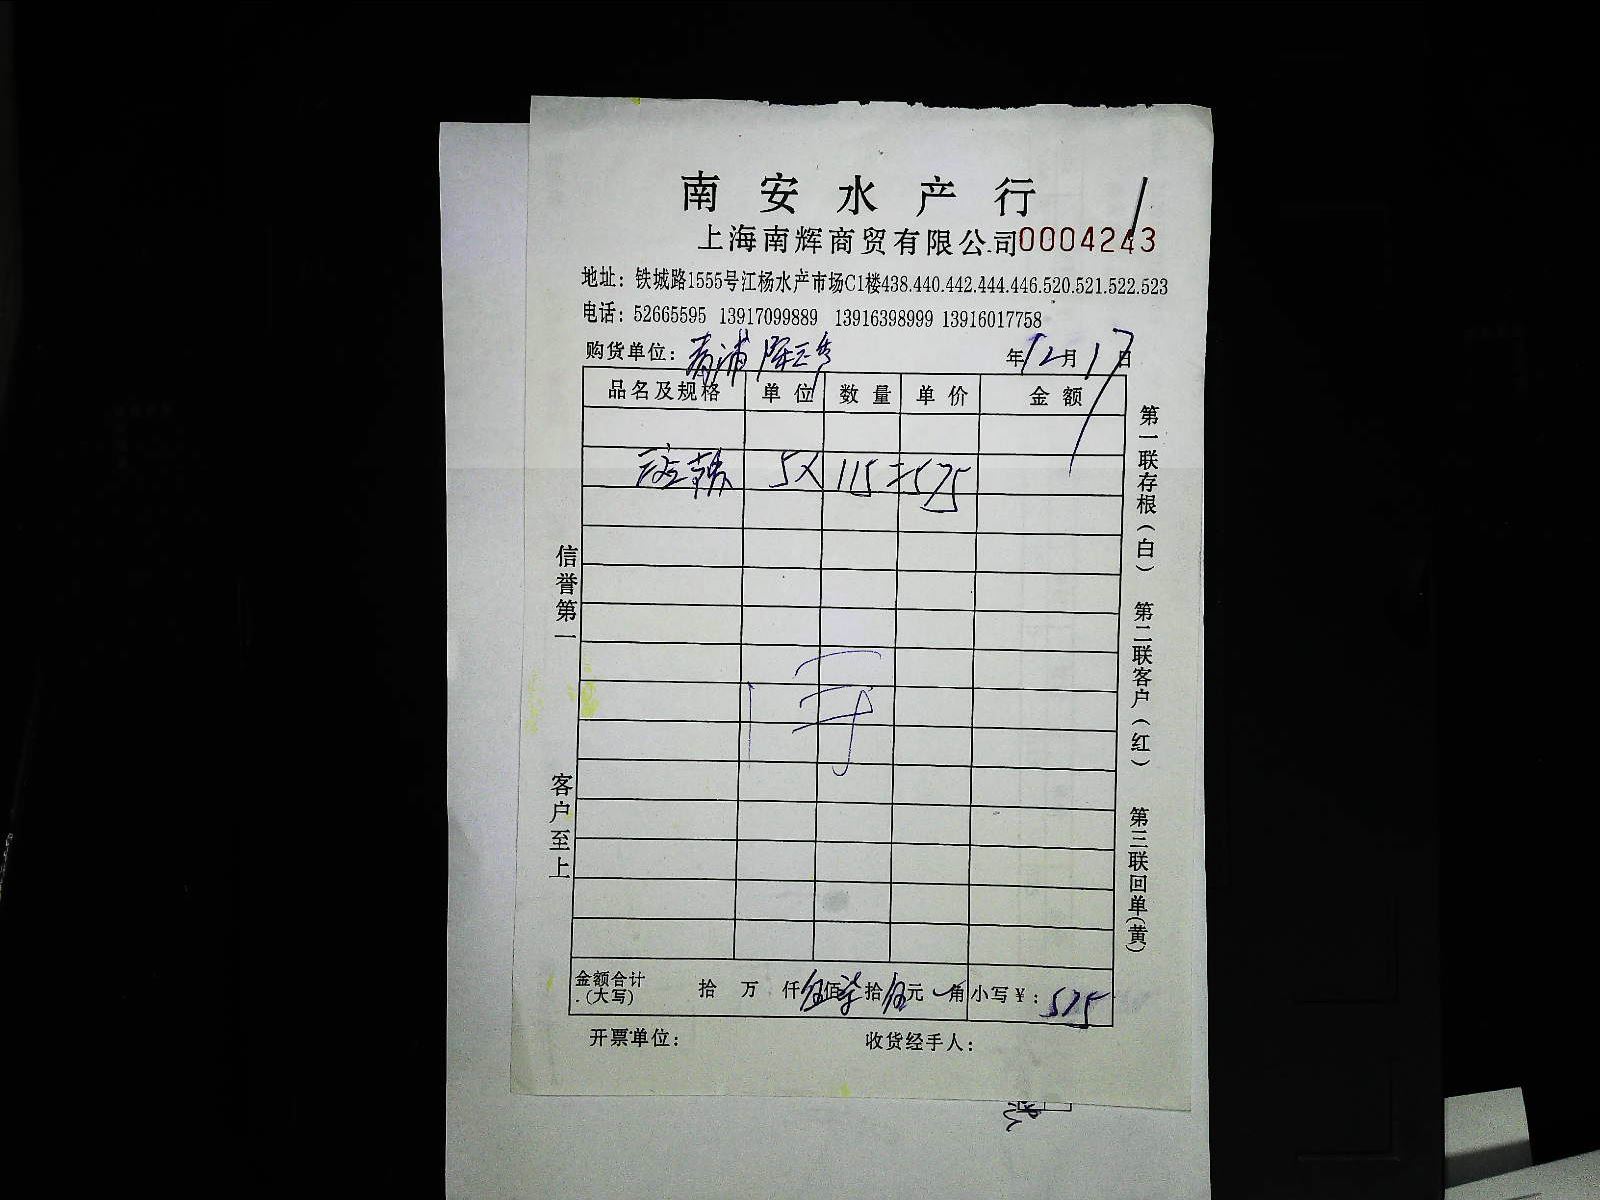 南安水产行
上海南辉商贸有限公司0004243
地址：铁城路1555号江杨水产市场C1楼438.440.442.444.446.520.521.522.523
电话：52665595 13917099889 13916398999 13916017758
购货单位：青浦
年12月17日
品名及规格 单位 数量 单价 金额
5X 115=575
信誉第一
客户至上
第一联存根（白）
第二联客户（红）
第三联回单（黄）
金额合计（大写） 拾 万 仟伍佰柒拾伍元 角 小写￥：575
开票单位： 收货经手人：